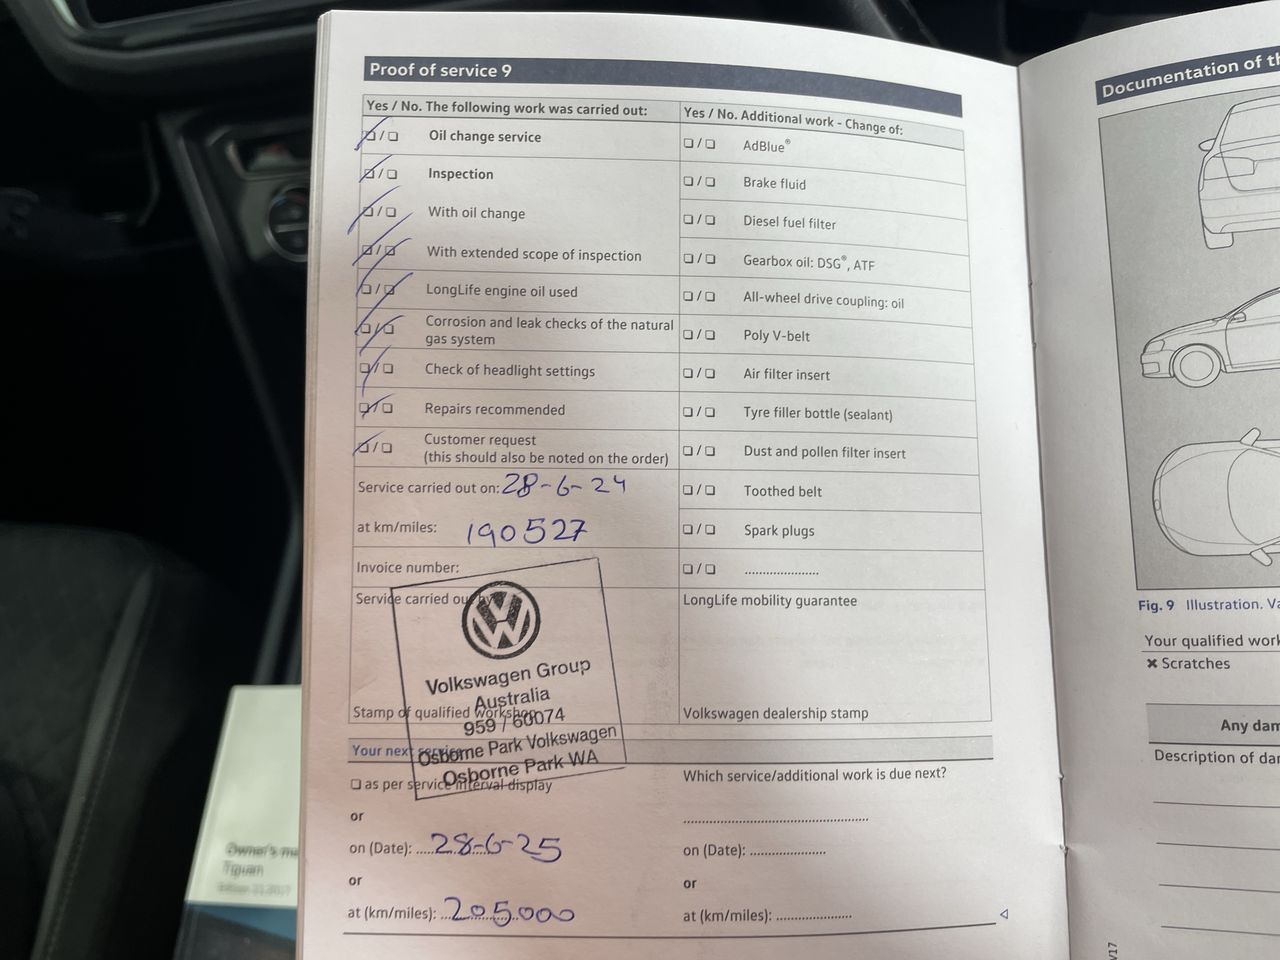 Proof of service 9
Yes / No. The following work was carried out:
❏ / ❏ Oil change service
❏ / ❏ Inspection
❏ / ❏ With oil change
❏ / ❏ With extended scope of inspection
❏ / ❏ LongLife engine oil used
❏ / ❏ Corrosion and leak checks of the natural
gas system
❏ / ❏ Check of headlight settings
❏ / ❏ Repairs recommended
❏ / ❏ Customer request
(this should also be noted on the order)
Service carried out on: 28-6-24
at km/miles: 190527
Invoice number:
Service carried out by
Stamp of qualified workshop
VW
Volkswagen Group
Australia
959 / 60074
Osborne Park Volkswagen
Osborne Park WA
Yes / No. Additional work – Change of:
❏ / ❏ AdBlue®
❏ / ❏ Brake fluid
❏ / ❏ Diesel fuel filter
❏ / ❏ Gearbox oil: DSG®, ATF
❏ / ❏ All-wheel drive coupling: oil
❏ / ❏ Poly V-belt
❏ / ❏ Air filter insert
❏ / ❏ Tyre filler bottle (sealant)
❏ / ❏ Dust and pollen filter insert
❏ / ❏ Toothed belt
❏ / ❏ Spark plugs
❏ / ❏ .....................
LongLife mobility guarantee
Volkswagen dealership stamp
Your next service
❏ as per service interval display
or
on (Date): 28-6-25
or
at (km/miles): 205000
Which service/additional work is due next?
on (Date): .....................
or
at (km/miles): .....................
Documentation of
Fig. 9 Illustration.
Your qualified
✖ Scratches
Any
Description of
V17
Owner's
Tiguan